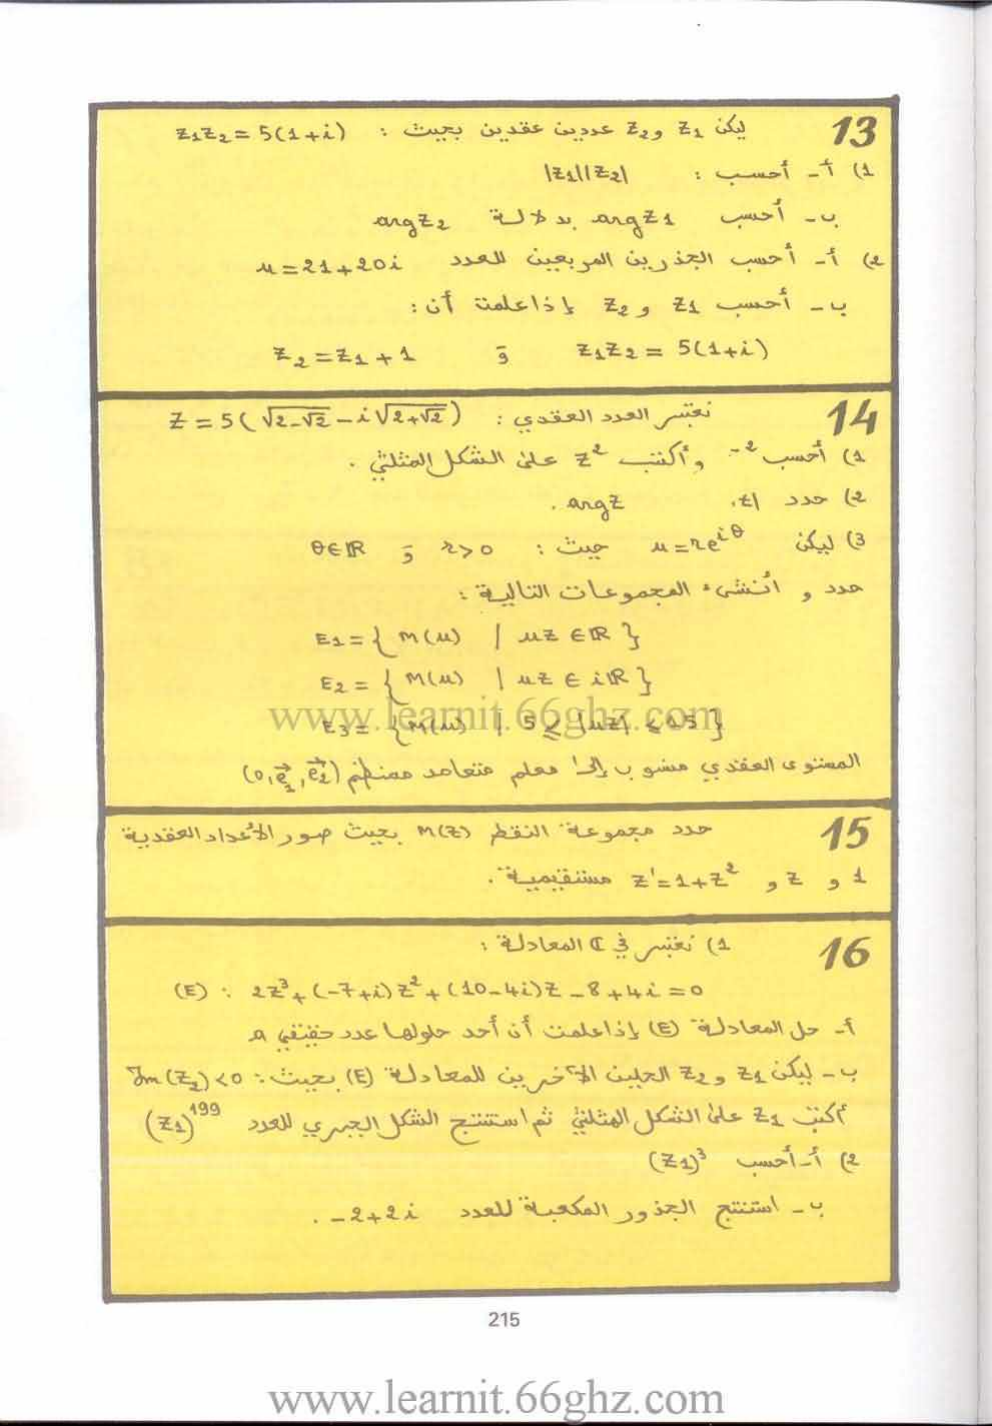 13 ليكن z₁ و z₂ عددين عقديين بحيث : z₁z₂ = 5(1+i)
1) أ- أحسب : |z₁||z₂|
ب- أحسب argz₁ بدلالة argz₂
2) أ- أحسب الجذرين المربعين للعدد u = 21+20i
ب- أحسب z₁ و z₂ إذا علمت أن :
z₁z₂ = 5(1+i) و z₂ = z₁ + 1
14 نعتبر العدد العقدي : z = 5(√(2-√2) - i√(2+√2))
1) أحسب z² وأكتب z² على الشكل المثلثي .
2) حدد |z| , argz .
3) ليكن u = re^{iθ} حيث : r>0 و θ∈ℝ
حدد و أنشئ المجموعات التالية :
E₁ = { M(u) | uz ∈ ℝ }
E₂ = { M(u) | uz ∈ iℝ }
E₃ = { M(u) | 5 ≤ |uz| ≤ 15 }
www.learnit.66ghz.com
المستوى العقدي منسوب إلى معلم متعامد ممنظم (0, e⃗₁, e⃗₂)
15 حدد مجموعة النقط M(z) بحيث صور الأعداد العقدية
1 و z و z' = 1+z² مستقيمية .
16 1) نعتبر في ℂ المعادلة :
(E) : 2z³ + (-7+i)z² + (10-4i)z - 8 + 4i = 0
أ- حل المعادلة (E) إذا علمت أن أحد حلولها عدد حقيقي
ب- ليكن z₁ و z₂ الحلين الآخرين للمعادلة (E) بحيث : Im(z₂) < 0
أكتب z₁ على الشكل المثلثي ثم استنتج الشكل الجبري للعدد (z₁)¹⁹⁹
2) أ- أحسب (z₁)³
ب- استنتج الجذور المكعبة للعدد -2+2i .
215
www.learnit.66ghz.com